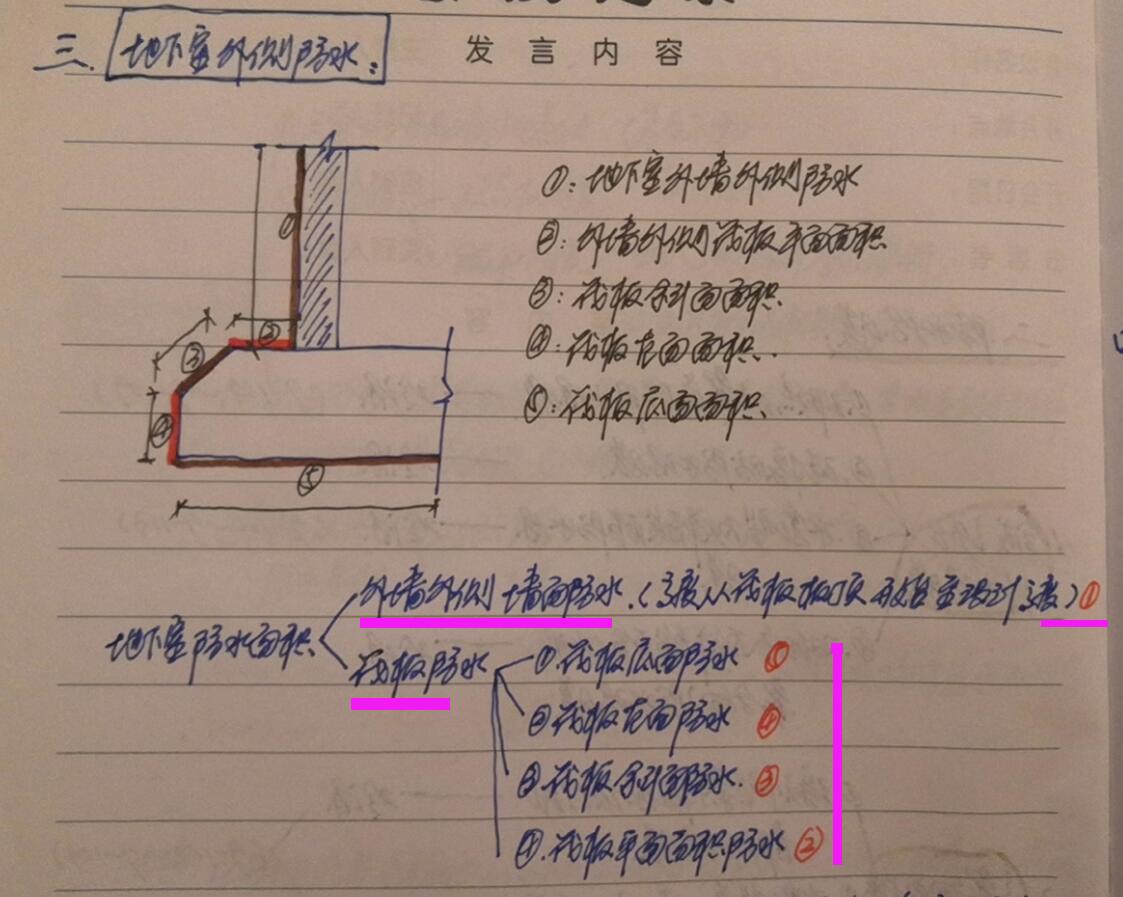 三. 地下室外侧防水:
发言内容
①: 地下室外墙外侧防水
②: 外墙外侧筏板平面面积
③: 筏板斜面面积.
④: 筏板立面面积.
⑤: 筏板底面面积.
①
②
③
④
⑤
外墙外侧墙面防水.(高度从筏板板顶开始至设计高度)①
地下室防水面积
筏板防水
①.筏板底面防水 ⑤
②筏板立面防水 ④
③.筏板斜面防水. ③
④.筏板平面面积防水 ②